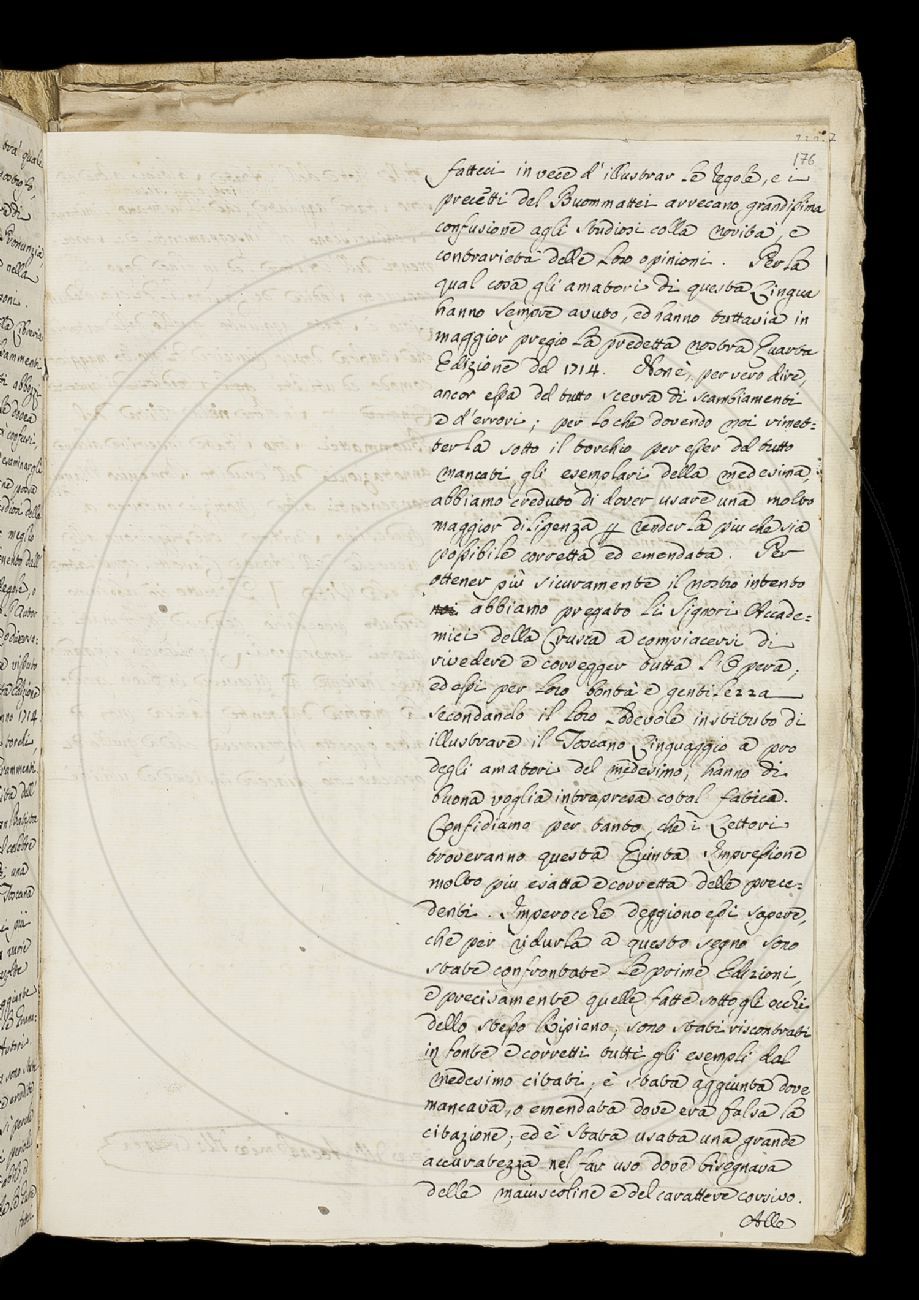 176
fatteci in vece d'illustrar le regole, e i
precetti del Buommattei arrecano grandissima
confusione agli Studiosi colla novità, e
contrarietà delle loro opinioni. Per la
qual cosa gli amatori di questa Lingua
hanno sempre avuto, ed hanno tuttavia in
maggior pregio la predetta nostra Quarta
Edizione del 1714. Non è, per vero dire,
ancor essa del tutto scevra di scambiamenti
e d'errori; per lo che dovendo noi rimet=
terla sotto il torchio per esser del tutto
mancati gli esemplari della medesima,
abbiamo creduto di dover usare una molto
maggior diligenza p render la più che sia
possibile corretta ed emendata. Per
ottener più sicuramente il nostro intento
noi abbiamo pregato li Signori Accade=
mici della Crusca a compiacersi di
rivedere e corregger tutta l'Opera;
ed essi per loro bontà e gentilezza
secondando il loro lodevole instituto di
illustrare il Toscano Linguaggio a pro
degli amatori del medesimo, hanno di
buona voglia intrapresa cotal fatica.
Confidiamo per tanto, che i Lettori
troveranno questa Quinta Impressione
molto più esatta e corretta delle prece=
denti. Imperocchè deggiono essi sapere,
che per ridurla a questo segno sono
state confrontate le prime Edizioni,
e precisamente quelle fatte sotto gli occhi
dello stesso Ripieno; sono stati riscontrati
in fonte e corretti tutti gli esempli dal
medesimo citati; è stata aggiunta dove
mancava, o emendata dove era falsa la
citazione; ed è stata usata una grande
accuratezza nel far uso dove bisognava
delle maiuscoline e del carattere corsivo.
Alle